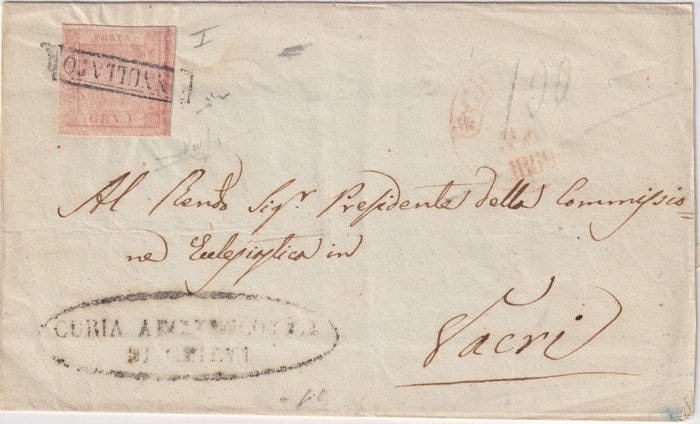 POSTA
ANNULLATO
GRA 1
I
100
1860
Al Rendo Sigr. Presidente della Commissio=
ne Eclesiastica in
Vacri
CURIA ARCIVESCOVILE
DI CHIETI